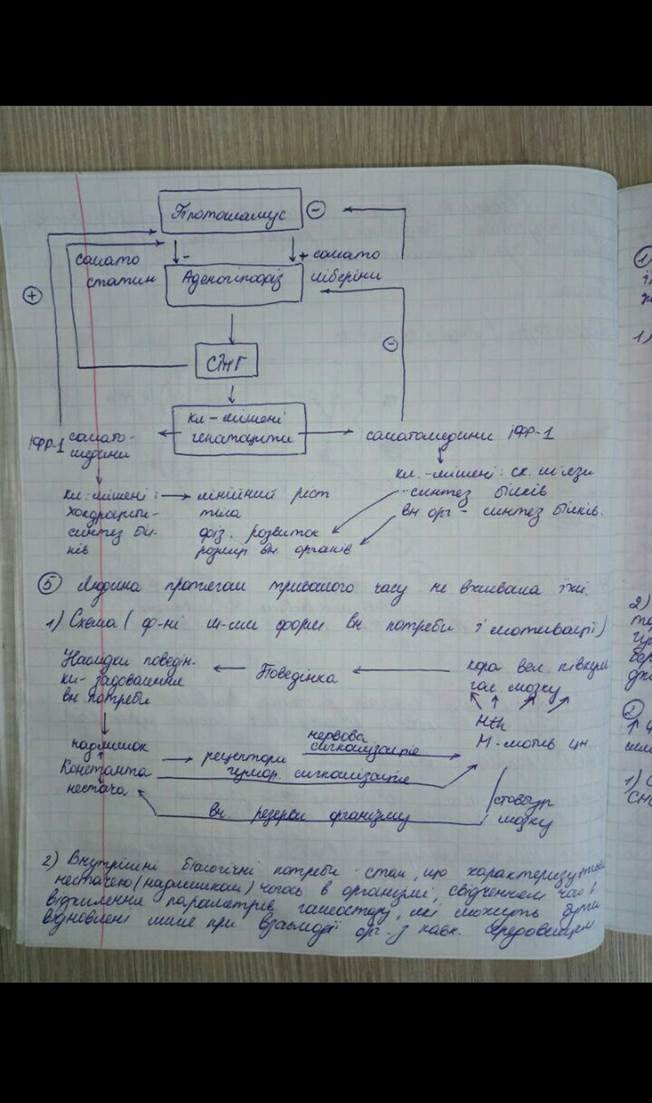 Гіпоталамус
-
сомато
статин
-
+ сомато
ліберіни
Аденогіпофіз
+
-
СТГ
кл-мішені
гепатоцити
ІФР-1 сомато-
медини
соматомедини ІФР-1
кл. мішені:
хондроцити-
синтез біл-
ків
лінійний ріст
тіла
фіз. розвиток
розмір вн. органів
кл.-мішені: ск. м'язи
-синтез білків
вн орг - синтез білків.
⑤ Людина протягом тривалого часу не вживала їжі.
1) Схема (ф-ні м-зми форм вн. потреби і мотивації)
Наслідки поведін-
ки-задоволення
вн потреби
Поведінка
кора вел. півкуль
гол. мозку
надлишок
Константа
нестача
рецептори
нервова
сигналізація
гумор. сигналізація
Hth
М-мотив цн.
стовбур
мозку
вн. резерви організму
2) Внутрішні біологічні потреби - стан, що характеризується
нестачею (надлишком) чогось в організмі, свідченням чого є
відхилення параметрів гомеостазу, які можуть бути
відновлені лише при взаємодії орг. з навк. середовищем.
①
1)
2)
②
1) С